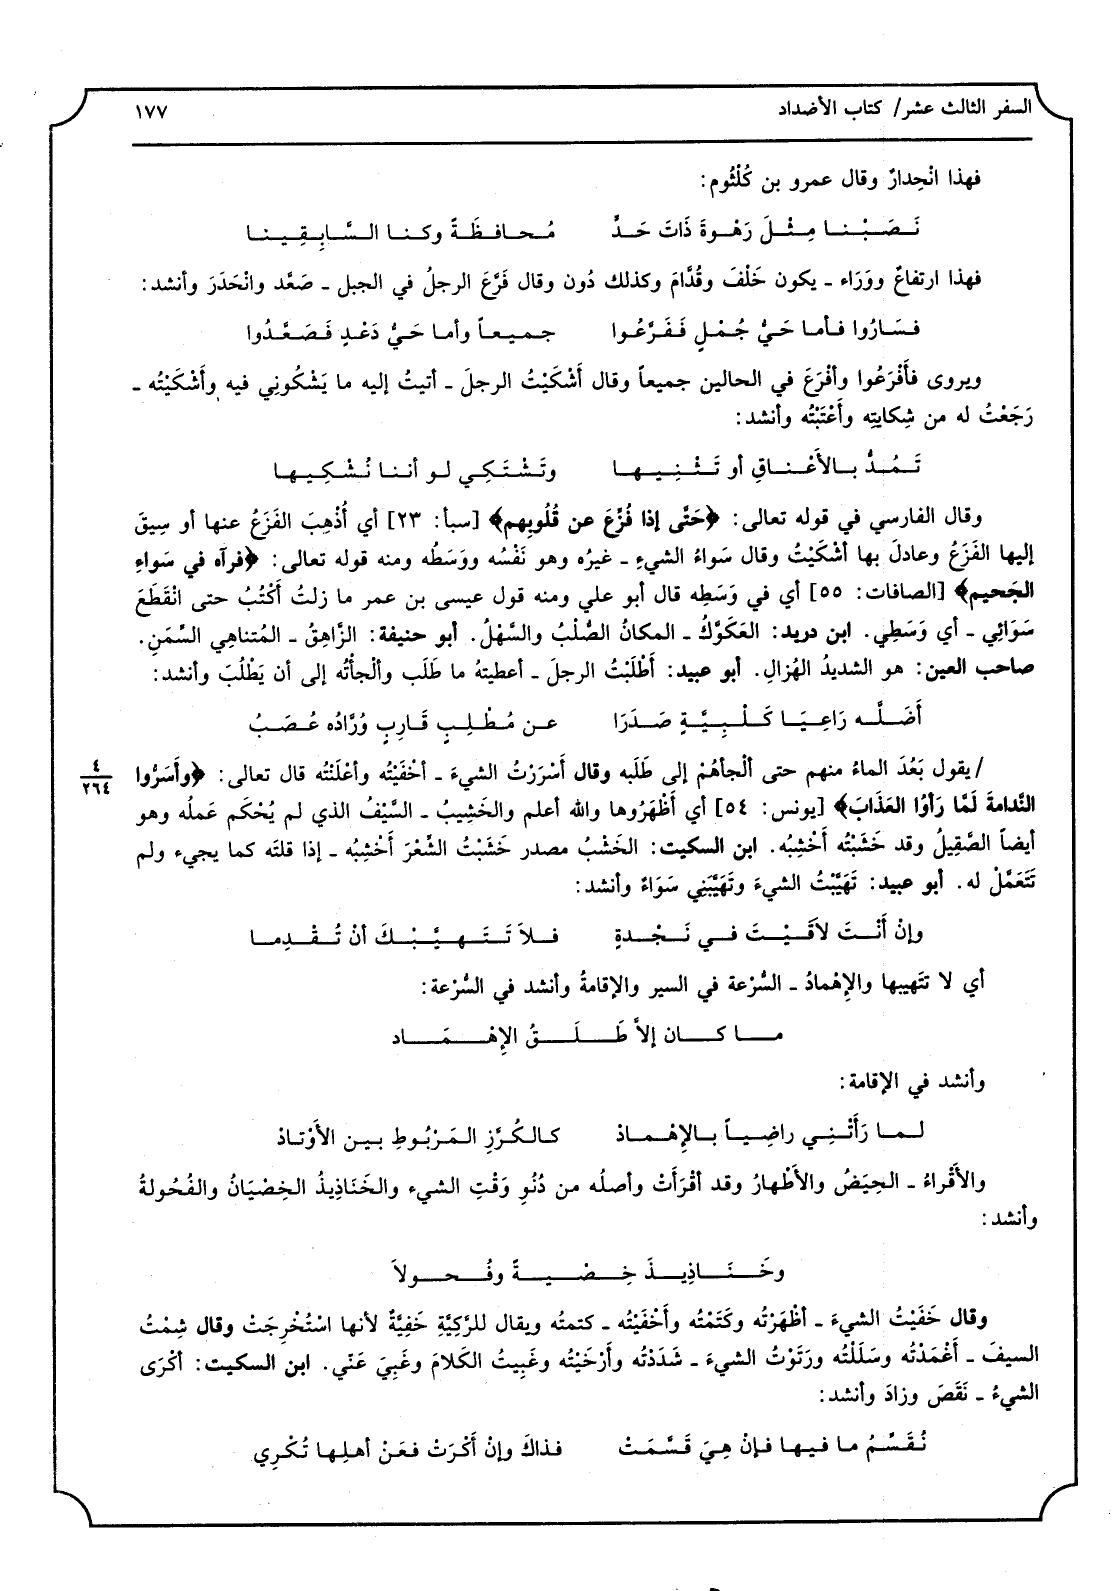 السفر الثالث عشر/ كتاب الأضداد ١٧٧
فهذا انْحِدارٌ وقال عمرو بن كُلْثُوم:
نَصَبْنا مِثْلَ رَهْوةَ ذَاتَ حَدٍّ مُحافظَةً وكنا السَّابِقِينا
فهذا ارتفاعٌ ووَرَاء ـ يكون خَلْفَ وقُدَّام وكذلك دُون وقال فَرَّعَ الرجلُ في الجبل ـ صَعَّد وانْحَدَرَ وأنشد:
فسَارُوا فأما حَيُّ جُمْلٍ فَفَرَّعُوا جميعاً وأما حَيُّ دَعْدٍ فَصَعَّدُوا
ويروى فأَفْرَعُوا وأفْرَعَ في الحالين جميعاً وقال أَشْكَيْتُ الرجلَ ـ أتيتُ إليه ما يَشْكُونِي فيه وأَشْكَيْتُه ـ
رَجَعْتُ له من شِكايتِه وأَعْتَبْتُه وأنشد:
تَمُدُّ بالأَعْناقِ أو تَثْنِيها وتَشْتَكِي لو أننا نُشْكِيها
وقال الفارسي في قوله تعالى: ﴿حَتَّى إذا فُزِّعَ عن قُلُوبِهم﴾ [سبأ: ٢٣] أي أُذْهِبَ الفَزَعُ عنها أو سِيقَ
إليها الفَزَعُ وعادلَ بها أشْكَيْتُ وقال سَواءُ الشيءِ ـ غيرُه وهو نَفْسُه ووَسَطُه ومنه قوله تعالى: ﴿فرآه في سَواءِ
الجَحيم﴾ [الصافات: ٥٥] أي في وَسَطِه قال أبو علي ومنه قول عيسى بن عمر ما زلتُ أَكْتُبُ حتى انْقَطَعَ
سَوَائِي ـ أي وَسَطِي. ابن دريد: العَكَوَّكُ ـ المكانُ الصُّلْبُ والسَّهْلُ. أبو حنيفة: الزَّاهِقُ ـ المُتناهِي السِّمَنِ.
صاحب العين: هو الشديدُ الهُزالِ. أبو عبيد: أَطْلَبْتُ الرجلَ ـ أعطيتهُ ما طَلَب وألْجأْتُه إلى أن يَطْلُبَ وأنشد:
أَضَلَّه رَاعِيَا كَلْبِيَّةٍ صَدَرَا عن مُطْلِبٍ قَارِبٍ وُرَّادُه عُصَبُ
/يقول بَعُدَ الماءُ منهم حتى ألْجأهُمْ إلى طَلَبِه وقال أَسْرَرْتُ الشيءَ ـ أخْفَيْتُه وأعْلَنْتُه قال تعالى: ﴿وأَسَرُّوا ٤ ٢٦٤
النَّدامةَ لَمَّا رَأوُا العَذَابَ﴾ [يونس: ٥٤] أي أظْهَرُوها والله أعلم والخَشِيبُ ـ السَّيْفُ الذي لم يُحْكَم عَملُه وهو
أيضاً الصَّقِيلُ وقد خَشَبْتُه أَخْشِبُه. ابن السكيت: الخَشْبُ مصدر خَشَبْتُ الشِّعْرَ أَخْشِبُه ـ إذا قلتَه كما يجيء ولم
تَتَعَمَّلْ له. أبو عبيد: تَهَيَّبْتُ الشيءَ وتَهَيَّبَنِي سَوَاءٌ وأنشد:
وإنْ أَنْتَ لاَقَيْتَ في نَجْدةٍ فلاَ تَتَهيَّبْكَ أنْ تُقْدِما
أي لا تتَهيبها والإهْمادُ ـ السُّرْعة في السير والإقامةُ وأنشد في السُّرْعة:
ما كان إلاَّ طَلَقُ الإِهْمَاد
وأنشد في الإقامة:
لما رَأَتْنِي راضِياً بالإِهْمادْ كالكُرَّزِ المَرْبُوطِ بين الأَوْتادْ
والأَقْراءُ ـ الحِيَضُ والأَطْهارُ وقد أقْرَأَتْ وأصلُه من دُنُوِ وَقْتِ الشيء والخَنَاذِيذُ الخِصْيَانُ والفُحُولةُ
وأنشد:
وخَنَاذِيذَ خِصْيةً وفُحولاَ
وقال خَفَيْتُ الشيءَ ـ أظْهَرْتُه وكَتَمْتُه وأَخْفَيْتُه ـ كتمتُه ويقال للرَّكِيَّةِ خَفِيَّةٌ لأنها اسْتُخْرِجَتْ وقال شِمْتُ
السيفَ ـ أغْمَدْتُه وسَلَلْتُه ورَتَوْتُ الشيءَ ـ شَدَدْتُه وأَرْخَيْتُه وغَبِيتُ الكَلامَ وغَبِيَ عَنّي. ابن السكيت: أكْرَى
الشيءُ ـ نَقَصَ وزادَ وأنشد:
نُقَسِّمُ ما فيها فإنْ هِيَ قَسَّمَتْ فذاكَ وإنْ أَكْرَتْ فعَنْ أهلِها تُكْرِي